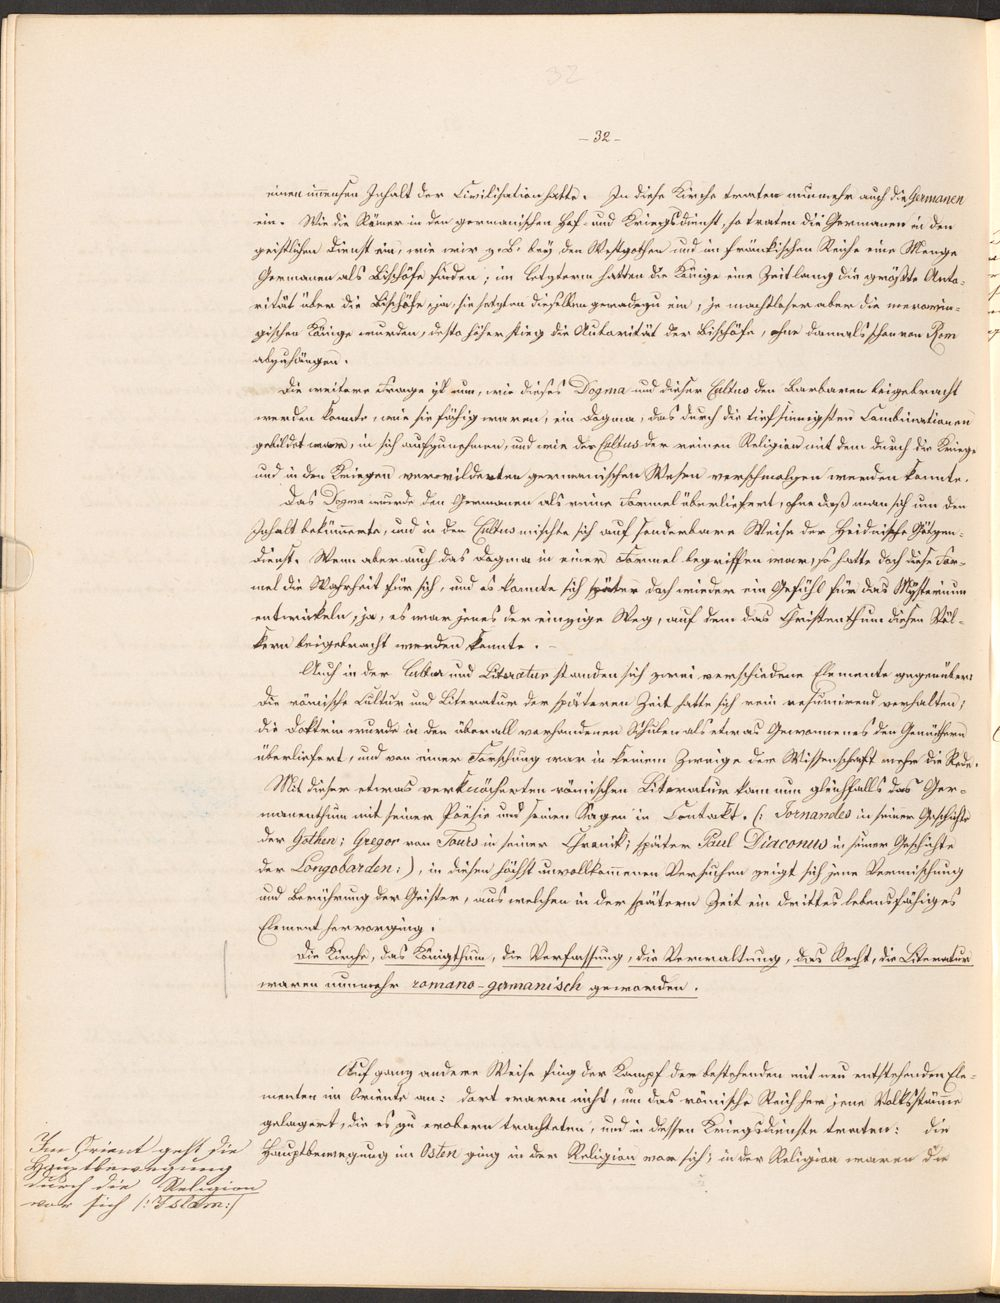 32
- 32 -
einen immensen Inhalt der Civilisation hatte. In diese Kirche traten nunmehr auch die Germanen
ein. Wie die Römer in den germanischen Hof- und Kriegsdienst, so traten die Germanen in den
geistlichen Dienst ein, wie wir z. B. bey den Westgothen und im fränkischen Reiche eine Menge
Germanen als Bischöfe finden; im letztern hatten die Könige eine Zeit lang die größte Auto-
rität über die Bischöfe, ja, sie setzten dieselben geradezu ein; je machtloser aber die merowin-
gischen Könige wurden, desto höher stieg die Autorität der Bischöfe, ohne damals schon von Rom
abzuhängen.
Die weitere Frage ist nun, wie dieses Dogma und dieser Cultus den Barbaren beigebracht
werden konnte, wie sie fähig waren, ein Dogma, das durch die tiefsinnigsten Combinationen
gebildet war, in sich aufzunehmen, und wie der Cultus der reinen Religion mit dem durch die Kriege
und in den Kriegen verwilderten germanischen Wesen verschmolzen werden konnte.
Das Dogma wurde den Germanen als reine Formel überliefert, ohne daß man sich um den
Inhalt bekümmerte, und in den Cultus mischte sich auf sonderbare Weise der heidnische Götzen-
dienst. Wenn aber auch das Dogma in einer Formel begriffen war, so hatte doch diese For-
mel die Wahrheit für sich, und es konnte sich später doch wieder ein Gefühl für das Mysterium
entwickeln, ja, es war jenes der einzige Weg, auf dem das Christenthum diesen Völ-
kern beigebracht werden konnte. -
Auch in der Cultur und Literatur standen sich zwei verschiedene Elemente gegenüber:
die römische Cultur und Literatur der späteren Zeit hatte sich rein resumirend verhalten;
die Doktrin wurde in den überall vorhandenen Schulen als etwas Gewonnenes den Gemüthern
überliefert, und von einer Forschung war in keinem Zweige der Wissenschaft mehr die Rede.
Mit dieser etwas verknöcherten römischen Literatur kam nun gleichfalls das Ger-
manenthum mit seiner Poësie und seinen Sagen in Contakt. (: Jornandes in seiner Geschichte
der Gothen; Gregor von Tours in seiner Chronik; später Paul Diaconus in seiner Geschichte
der Longobarden :), in diesen höchst unvollkommenen Versuchen zeigt sich jene Vermischung
und Berührung der Geister, aus welchen in der spätern Zeit ein drittes lebensfähiges
Element hervorging.
Die Kirche, das Königthum, die Verfassung, die Verwaltung, das Recht, die Literatur
waren nunmehr romano-germanisch geworden.
Auf ganz andere Weise fing der Kampf der bestehenden mit neu entstehenden Ele-
menten im Oriente an: dort waren nicht, um das römische Reich her jene Volksstämme
gelagert, die es zu erobern trachteten, und in dessen Kriegsdienste traten: die
Hauptbewegung im Osten ging in der Religion vor sich; in der Religion waren die
Im Orient geht die
Hauptbewegung
durch die Religion
vor sich (: Islam :)